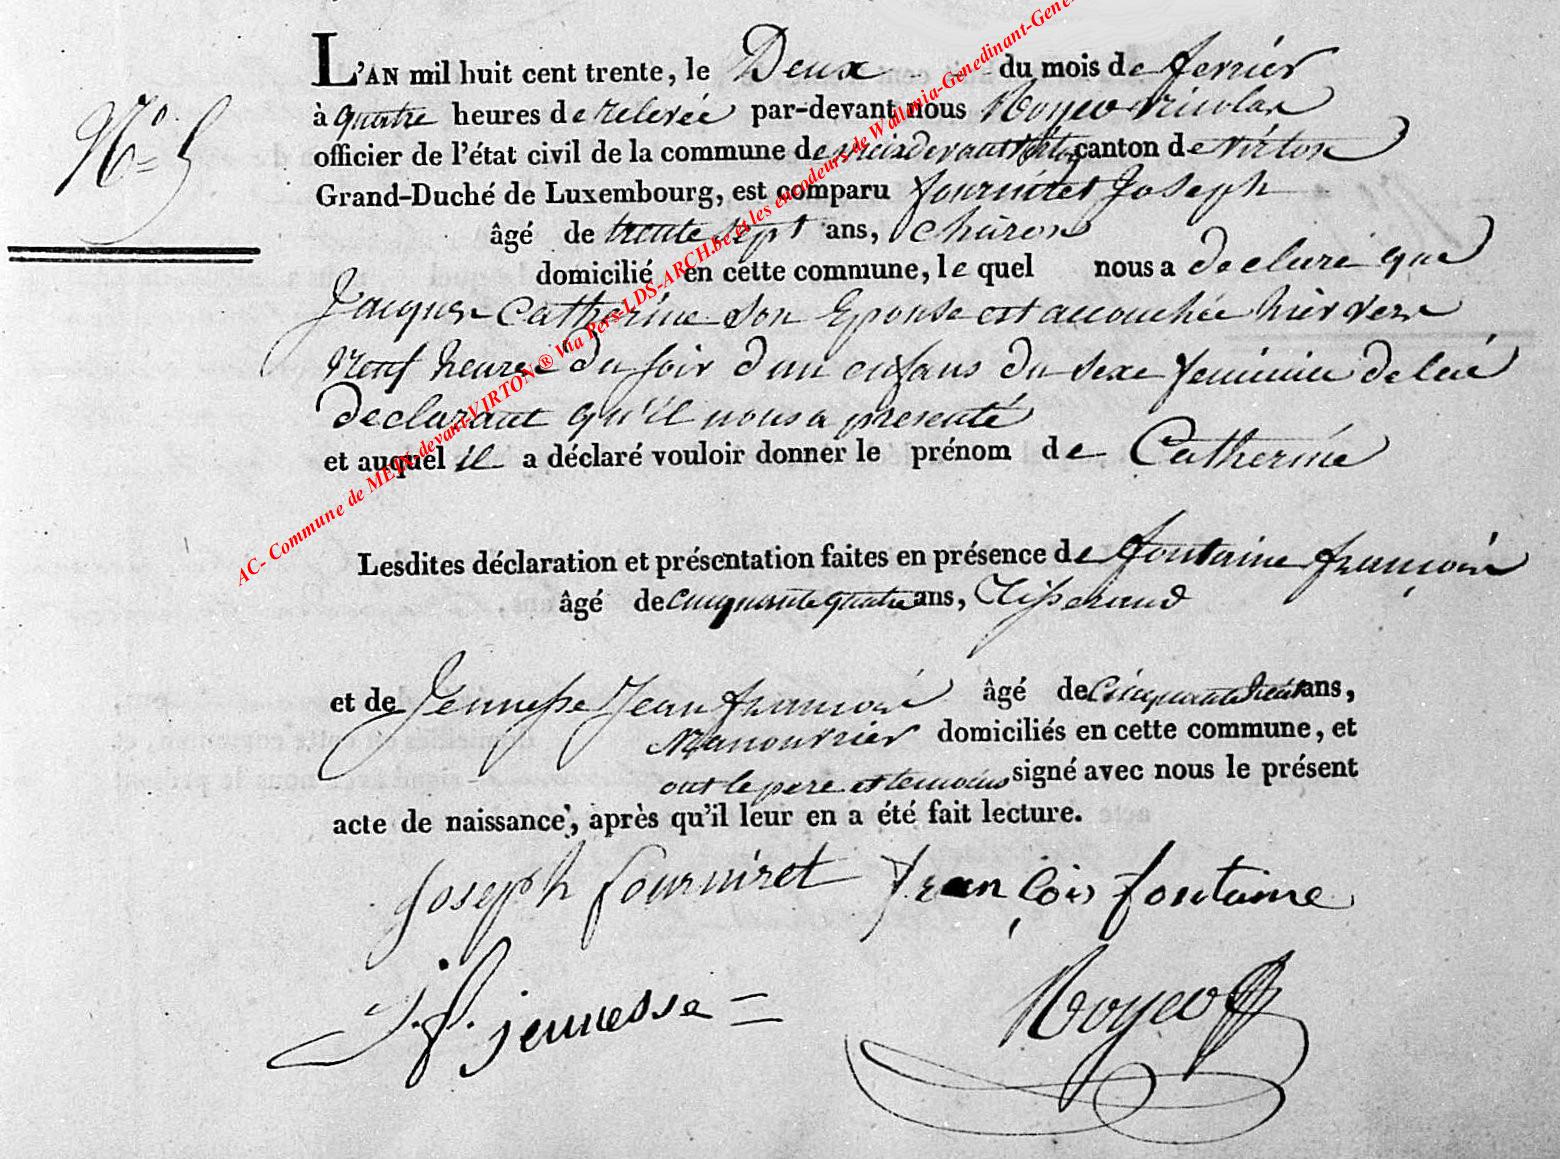 L'AN mil huit cent trente, le Deux du mois de fevrier
N° 5
à quatre heures de relevée par-devant nous Nicolas
officier de l'état civil de la commune de meixdevant virton canton de virton
Grand-Duché de Luxembourg, est comparu fourniret Joseph
âgé de trente sept ans, Charon
domicilié en cette commune, le quel nous a declaré que
Jacques Catherine son Epouse est accouchée hier vers
neuf heures du soir d'un enfans du sexe feminin de lui
declarant qu'il nous a presenté
et auquel il a déclaré vouloir donner le prénom de Catherine
Lesdites déclaration et présentation faites en présence de fontaine françois
âgé de cinquante quatre ans, Tisserand
et de Jennesse Jean françois âgé de Cinquante ans,
Manouvrier domiciliés en cette commune, et
ont le pere et temoins signé avec nous le présent
acte de naissance, après qu'il leur en a été fait lecture.
Joseph fourniret françois fontaine
J. f. jennesse =
AC- Commune de MEIX-devant-VIRTON® Via Pers-LDS-ARCH.be et les encodeurs de Wallonia-Genedinant-Gene